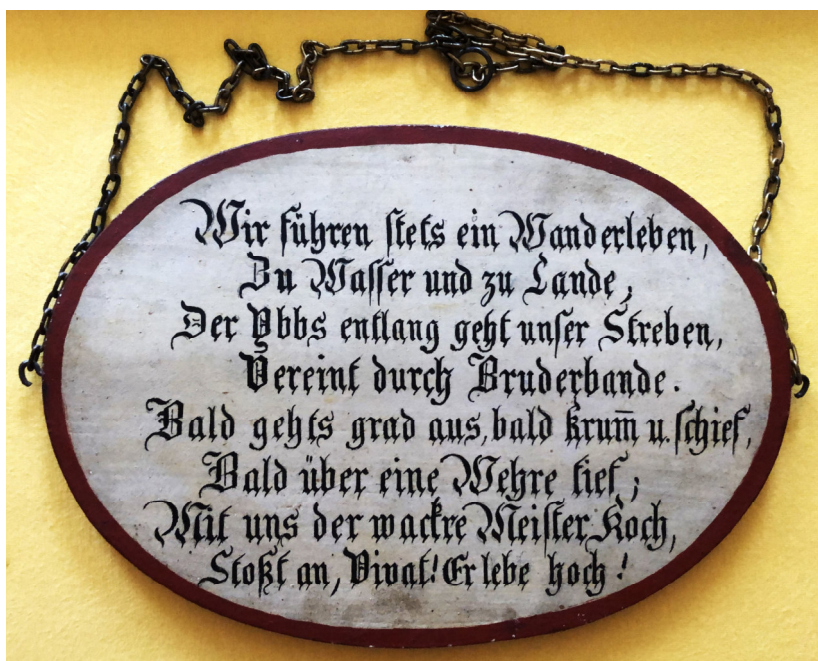 Wir führen ſtets ein Wanderleben,
Zu Waſſer und zu Lande,
Der Ybbs entlang geht unſer Streben,
Vereint durch Bruderbande.
Bald gehts grad aus, bald krum̅ u. ſchief,
Bald über eine Wehre tief;
Mit uns der wackre Meiſter Koch,
Stoßt an, Vivat! Er lebe hoch!